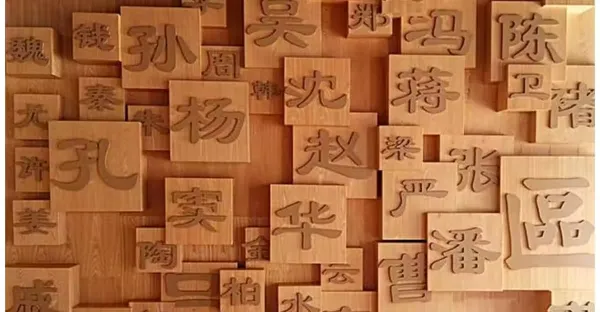 吴 郑 冯 陈
魏 钱 孙 周 韩 沈 蒋 卫 褚
尤 秦 朱 杨 赵 梁 张
许 孔 窦 华 严
姜 陶 金 云 曹 潘 區
戚 柏 水